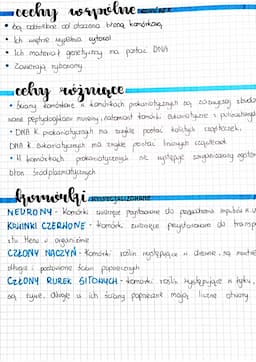 cechy wspólne
• są oddzielone od otoczenia błoną komórkową
• Ich wnętrze wypełnia cytozol
• Ich materiał genetyczny ma postać DNA
• Zawierają rybosomy
cechy różniące
• Ściany komórkowe w komórkach prokariotycznych są zazwyczaj zbudo
wane peptydoglikanu mureiny, natomiast komórki eukariotyczne z
• DNA K. prokariotycznych ma zwykle postać kolistych cząsteczek,
DNA K. eukariotycznych ma zwykle postać liniowych cząsteczek
• W komórkach prokariotycznych nie występuje
błon śródplazmatycznych
komórki
NEURONY - Komórki zwierzęce przystosowane do przewodzenia impulsów
KRWINKI CZERWONE - Komórki zwierzęce przystosowane do transp
w organizmie
CZŁONY NACZYŃ - Komórki roślin występujące w drewnie, są martwe
długie i pozbawione ścian poprzecznych
CZŁONY RUREK SITOWYCH - komórki roślin występujące w łyku,
są żywe, długie w ich ściany poprzeczne mają liczne otwory